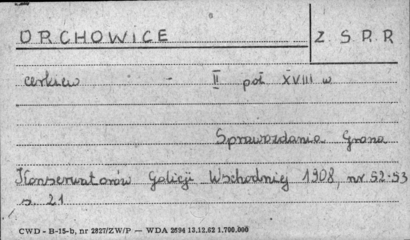 ORCHOWICE
Z S R R
cerkiew - II poł XVIII w
Sprawozdania Grona
Konserwatorów Galicji Wschodniej 1908, nr 52-53
s. 21
CWD - B-15-b, nr 2827/ZW/P — WDA 2694 13.12.62 1.700.000